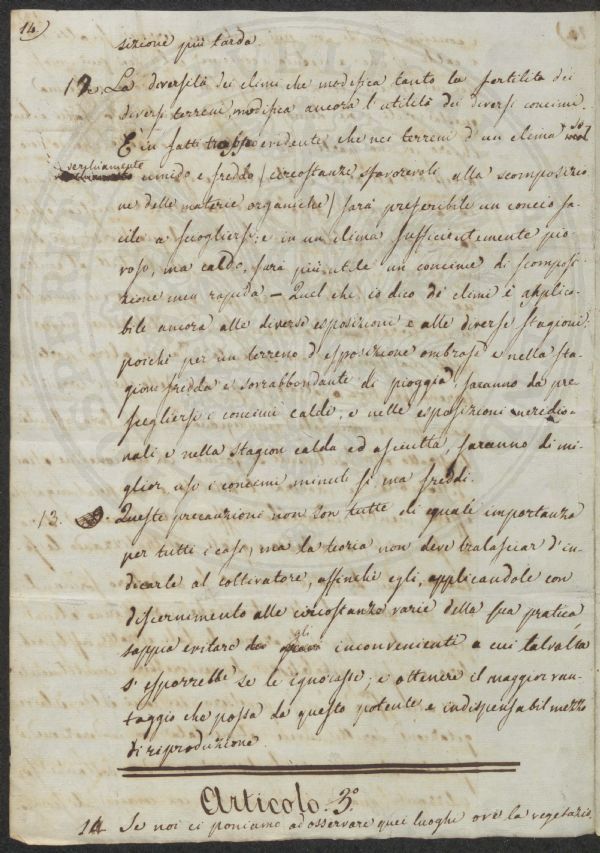 14.)
sizione più tarda.
12. La diversità dei climi che modifica tanto la fertilità dei
diversi terreni, modifica ancora l'utilità dei diversi concimi.
È in fatti troppo evidente che nei terreni d'un clima
umido e freddo (circostanze sfavorevoli alla scomposizio
ne delle materie organiche) sarà preferibile un concio fa
cile a sciogliersi; e in un clima sufficientemente pio
voso, ma caldo, sarà più utile un concime di scompos
izione men rapida — Quel che io dico di climi è applica
bile ancora alle diverse esposizioni e alle diverse stagioni,
poichè per un terreno d'esposizione ombrosa e nella sta
gione fredda e sovrabbondante di pioggia, saranno da pre
scegliersi i concimi caldi, e nelle esposizioni meridio
nali e nella stagion calda ed asciutta, saranno di mi
glior uso i concimi minuti sì, ma freddi.
13. Queste precauzioni non son tutte di eguale importanza
per tutti i casi, ma la teoria non deve tralasciar d'in
dicarle al coltivatore, affinchè egli, applicandole con
discernimento alle circostanze varie della sua pratica,
sappia evitare gli inconvenienti a cui talvolta
s'esporrebbe se le ignorasse; e ottenere il maggior van
taggio che possa da questo potente e indispensabil mezzo
di riproduzione.
Articolo 3.º
14. Se noi ci poniamo ad osservare quei luoghi ove la vegetazio